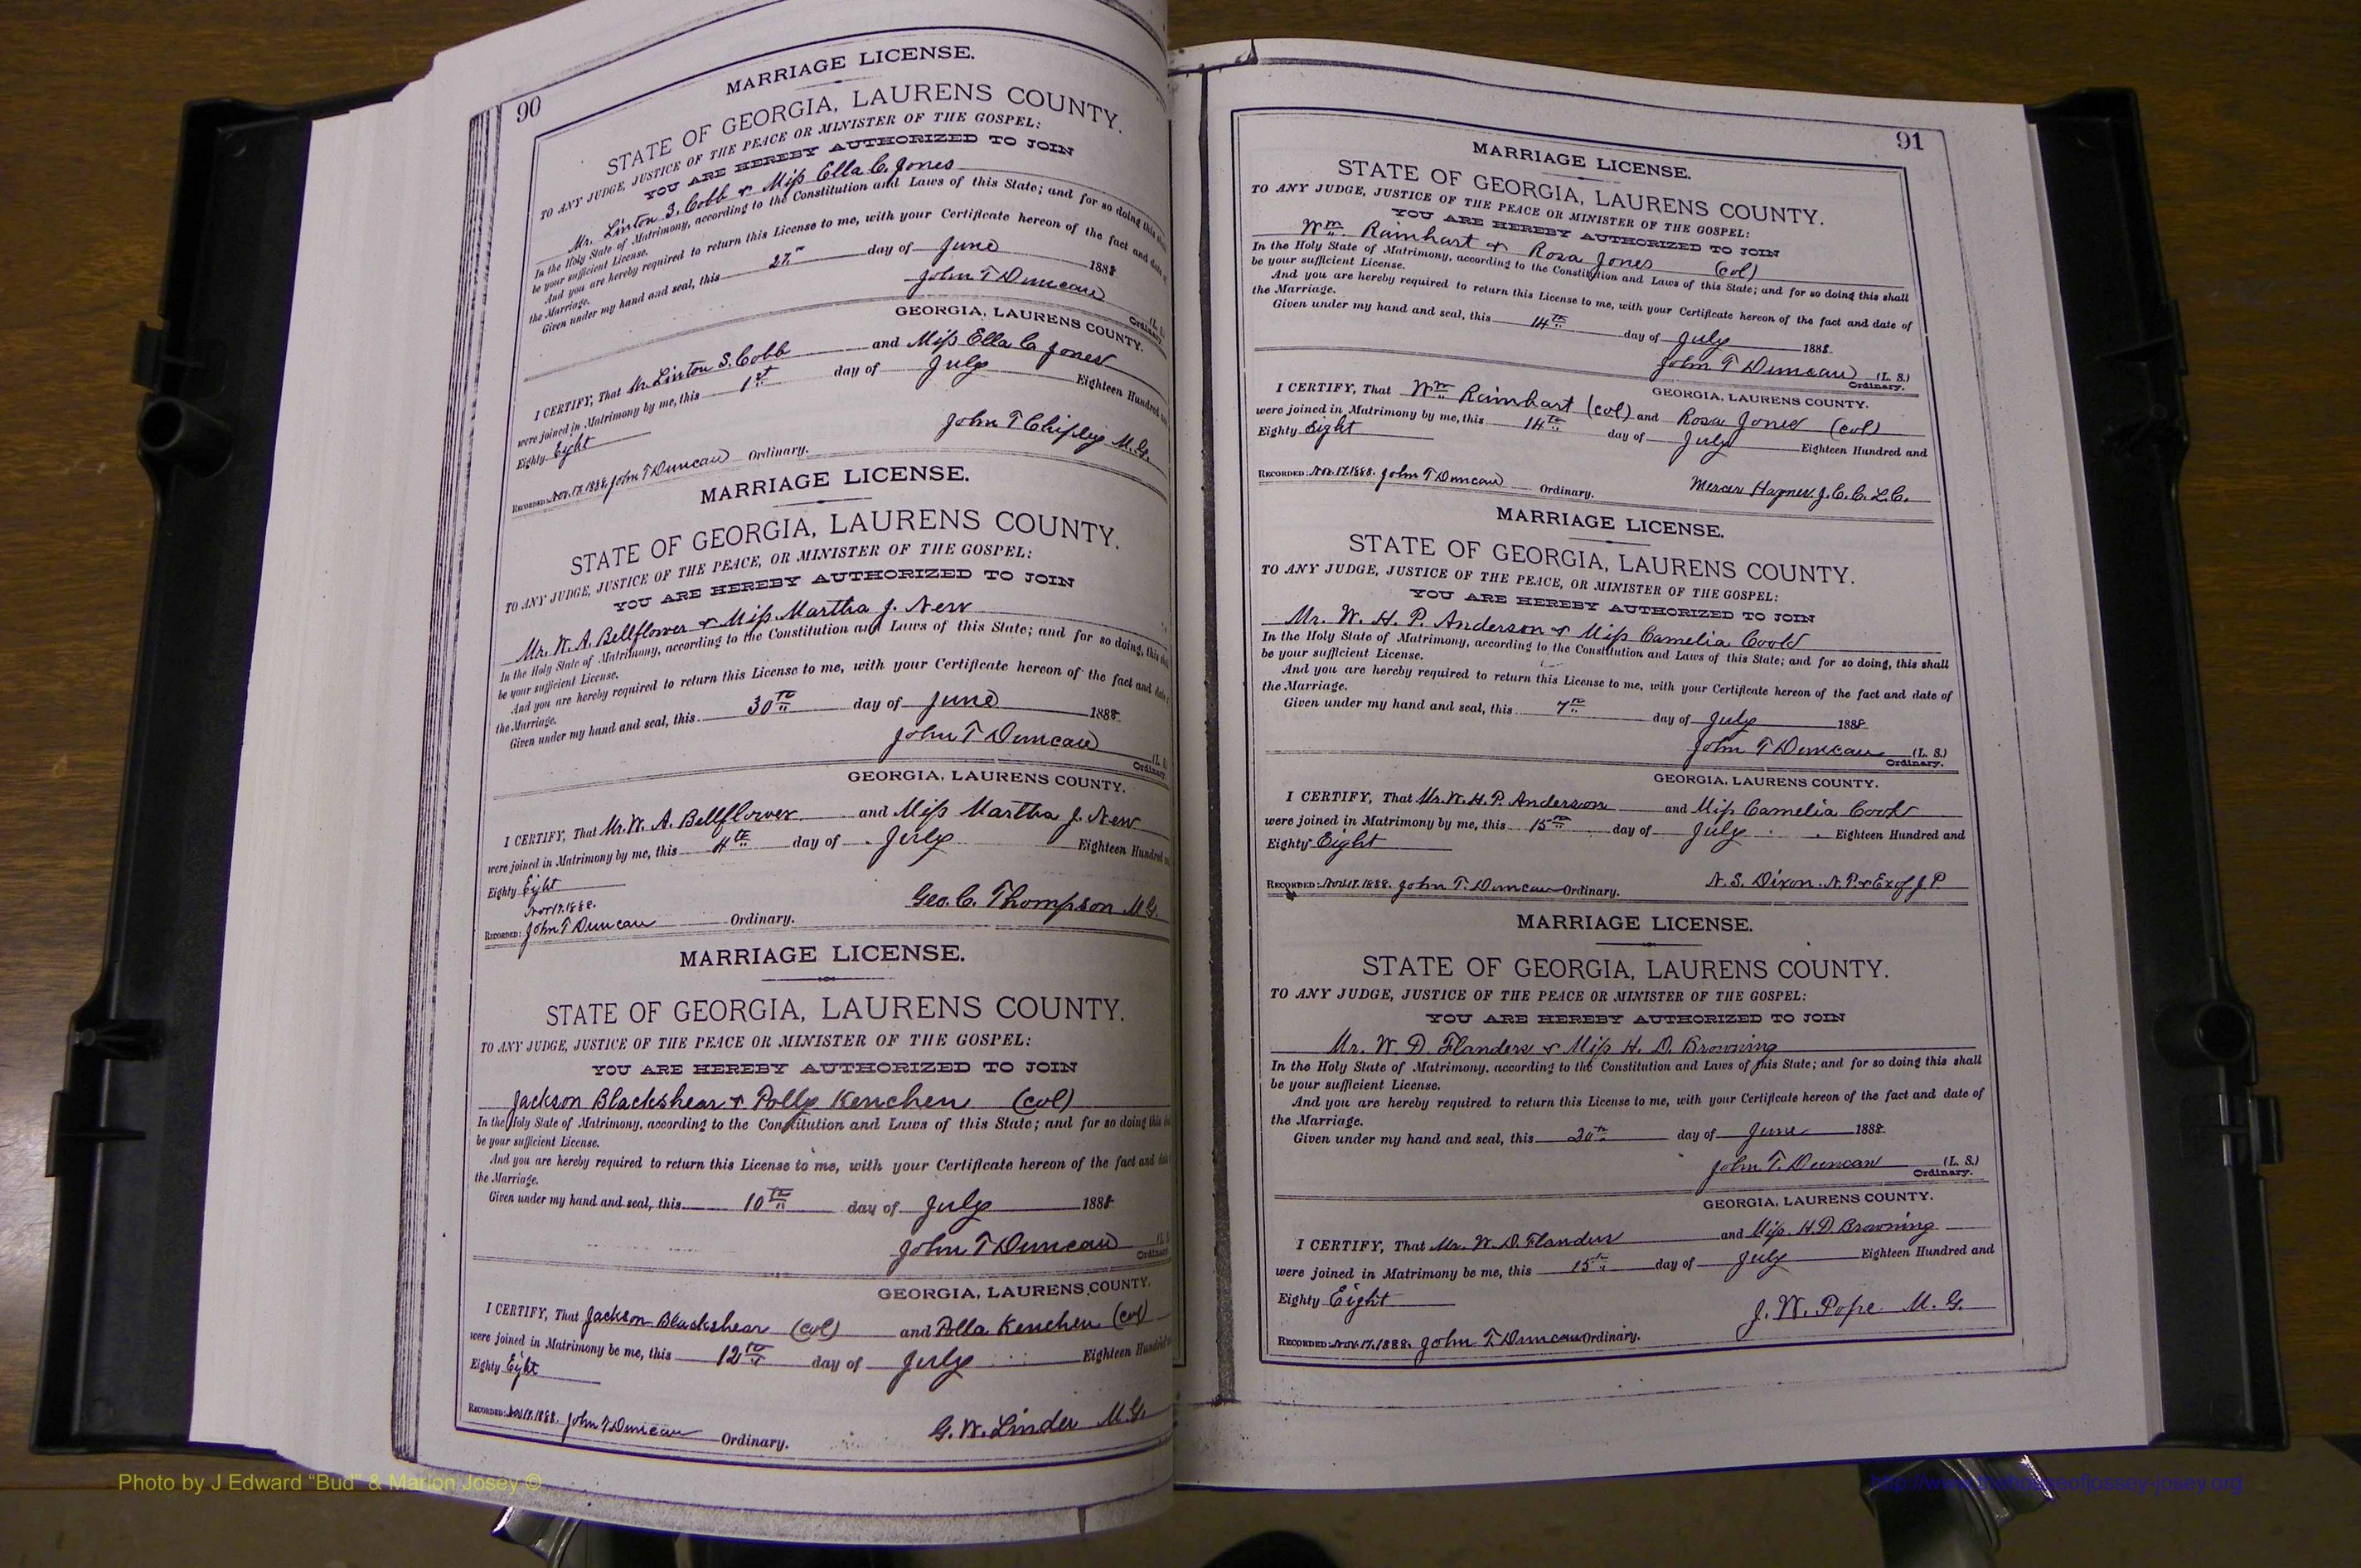 90
MARRIAGE LICENSE.
STATE OF GEORGIA, LAURENS COUNTY.
TO ANY JUDGE, JUSTICE OF THE PEACE OR MINISTER OF THE GOSPEL:
YOU ARE HEREBY AUTHORIZED TO JOIN
Mr. Linton S. Cobb & Miss Ella C. Jones
In the Holy State of Matrimony, according to the Constitution and Laws of this State; and for so doing this
be your sufficient License.
And you are hereby required to return this License to me, with your Certificate hereon of the fact and date
the Marriage.
Given under my hand and seal, this 27 day of June 1888
John T Duncan (L.
Ordinary.
GEORGIA, LAURENS COUNTY.
I CERTIFY, That Mr. Linton S. Cobb and Miss Ella C. Jones
were joined in Matrimony by me, this 1st day of July Eighteen Hundred
Eighty Eight
John T Chipley M.G.
RECORDED: Nov. 17. 1888. John T Duncan Ordinary.
MARRIAGE LICENSE.
STATE OF GEORGIA, LAURENS COUNTY.
TO ANY JUDGE, JUSTICE OF THE PEACE, OR MINISTER OF THE GOSPEL:
YOU ARE HEREBY AUTHORIZED TO JOIN
Mr. W. A. Bellflower & Miss. Martha J. New
In the Holy State of Matrimony, according to the Constitution and Laws of this State; and for so doing, this
be your sufficient License.
And you are hereby required to return this License to me, with your Certificate hereon of the fact and date
the Marriage.
Given under my hand and seal, this 30th day of June 1888
John T Duncan (L.
Ordinary.
GEORGIA, LAURENS COUNTY.
I CERTIFY, That Mr. W. A. Bellflower and Miss Martha J. New
were joined in Matrimony by me, this 4th day of July Eighteen Hundred
Eighty Eight
Geo. C. Thompson M.G.
Nov 17. 1888.
RECORDED: John T Duncan Ordinary.
MARRIAGE LICENSE.
STATE OF GEORGIA, LAURENS COUNTY.
TO ANY JUDGE, JUSTICE OF THE PEACE OR MINISTER OF THE GOSPEL:
YOU ARE HEREBY AUTHORIZED TO JOIN
Jackson Blackshear & Polly Kenchen (col)
In the Holy State of Matrimony, according to the Constitution and Laws of this State; and for so doing this
be your sufficient License.
And you are hereby required to return this License to me, with your Certificate hereon of the fact and date
the Marriage.
Given under my hand and seal, this 10th day of July 1888
John T Duncan (L.
Ordinary
GEORGIA, LAURENS COUNTY.
I CERTIFY, That Jackson Blackshear (col) and Polla Kenchen (col)
were joined in Matrimony be me, this 12th day of July Eighteen Hundred
Eighty Eight
G. W. Linder M.G.
RECORDED: Nov. 17. 1888. John T Duncan Ordinary.
91
MARRIAGE LICENSE.
STATE OF GEORGIA, LAURENS COUNTY.
TO ANY JUDGE, JUSTICE OF THE PEACE OR MINISTER OF THE GOSPEL:
YOU ARE HEREBY AUTHORIZED TO JOIN
Wm. Rainhart & Rosa Jones (col)
In the Holy State of Matrimony, according to the Constitution and Laws of this State; and for so doing this shall
be your sufficient License.
And you are hereby required to return this License to me, with your Certificate hereon of the fact and date of
the Marriage.
Given under my hand and seal, this 14th day of July 1888
John T Duncan (L. S.)
Ordinary.
GEORGIA, LAURENS COUNTY.
I CERTIFY, That Wm Rainhart (col) and Rosa Jones (col)
were joined in Matrimony by me, this 14th day of July Eighteen Hundred and
Eighty Eight
Mercer Haynes. J. C. C. L. C.
RECORDED: Nov. 17. 1888. John T Duncan Ordinary.
MARRIAGE LICENSE.
STATE OF GEORGIA, LAURENS COUNTY.
TO ANY JUDGE, JUSTICE OF THE PEACE, OR MINISTER OF THE GOSPEL:
YOU ARE HEREBY AUTHORIZED TO JOIN
Mr. W. H. P. Anderson & Miss Camelia Cook
In the Holy State of Matrimony, according to the Constitution and Laws of this State; and for so doing, this shall
be your sufficient License.
And you are hereby required to return this License to me, with your Certificate hereon of the fact and date of
the Marriage.
Given under my hand and seal, this 7th day of July 1888
John T Duncan (L. S.)
Ordinary.
GEORGIA, LAURENS COUNTY.
I CERTIFY, That Mr. W. H. P. Anderson and Miss Camelia Cook
were joined in Matrimony by me, this 15th day of July Eighteen Hundred and
Eighty Eight
N. S. Dixon. N. P. & Exof J P
RECORDED: Nov. 17. 1888. John T. Duncan Ordinary.
MARRIAGE LICENSE.
STATE OF GEORGIA, LAURENS COUNTY.
TO ANY JUDGE, JUSTICE OF THE PEACE OR MINISTER OF THE GOSPEL:
YOU ARE HEREBY AUTHORIZED TO JOIN
Mr. W. D. Flanders & Miss H. D. Browning
In the Holy State of Matrimony, according to the Constitution and Laws of this State; and for so doing this shall
be your sufficient License.
And you are hereby required to return this License to me, with your Certificate hereon of the fact and date of
the Marriage.
Given under my hand and seal, this 30th day of June 1888
John T. Duncan (L. S.)
Ordinary.
GEORGIA, LAURENS COUNTY.
I CERTIFY, That Mr. W. D. Flanders and Miss H. D Browning
were joined in Matrimony be me, this 15th day of July Eighteen Hundred and
Eighty Eight
J. W. Pope. M. G.
RECORDED: Nov. 17. 1888. John T. Duncan Ordinary.
Photo by J Edward “Bud” & Marion Josey ©
http://www.thehouseofjossey-josey.org